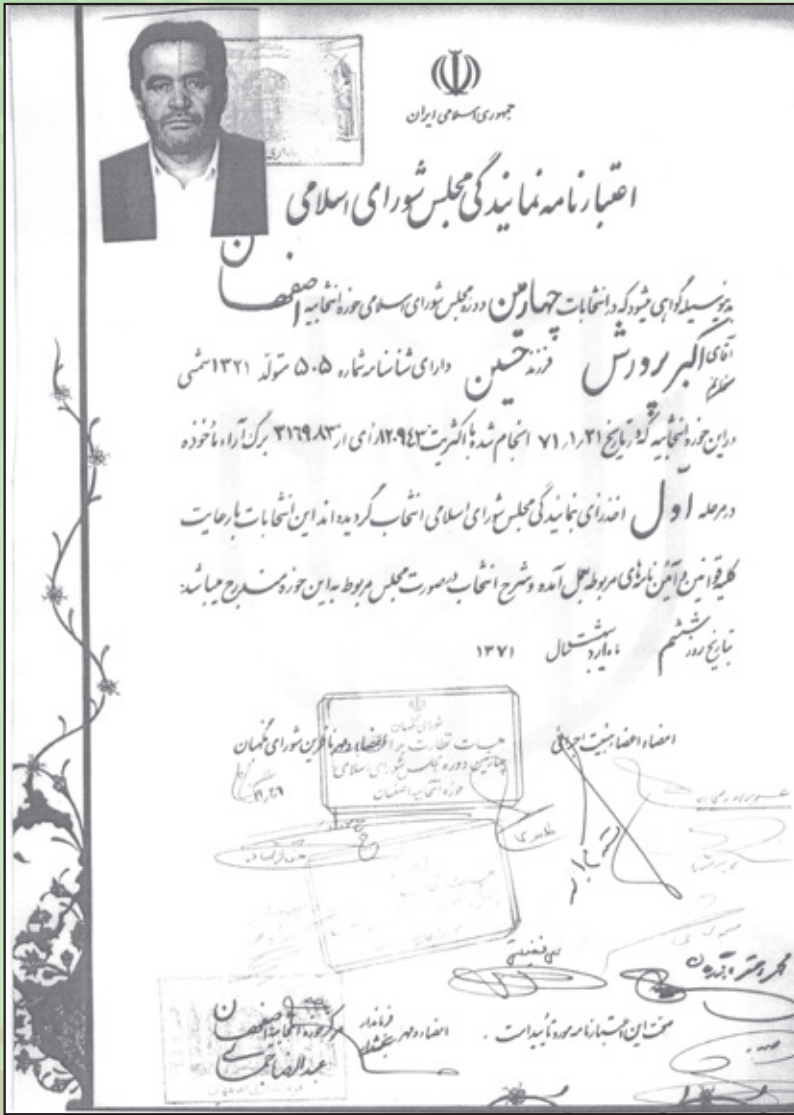 جمهوری اسلامی ایران
اعتبارنامه نمایندگی مجلس شورای اسلامی
بدینوسیله گواهی میشود که در انتخابات چهارمین دوره مجلس شورای اسلامی حوزه انتخابیه اصفهان
آقای اکبر پرورش فرزند حسین دارای شناسنامه شماره ۵۰۵ متولد ۱۳۲۱ شمسی
خانم
در این حوزه انتخابیه که در تاریخ ۷۱٫۱٫۲۱ انجام شد با اکثریت ۸۲۰۹۴۳ رأی از ۳۱۶۹۸۳ برگ آراء مأخوذه
در مرحله اول اخذ رأی بنمایندگی مجلس شورای اسلامی انتخاب گردیده اند این انتخابات با رعایت
کلیه قوانین و آئین نامه های مربوطه بعمل آمده و شرح انتخاب در صورت مجلس مربوط به این حوزه مندرج میباشد:
بتاریخ روز ششم ماه اردیبهشت سال ۱۳۷۱
شورای نگهبان
امضاء اعضاء هیئت اجرائی
هیات نظارت بر
امضاء و مهر ناظرین شورای نگهبان
چهارمین دوره مجلس شورای اسلامی
حوزه انتخابیه اصفهان
صحت این اعتبارنامه مورد تأیید است .
امضاء و مهر فرماندار مرکز حوزه انتخابیه اصفهان
بخشدار
عبدالرضا